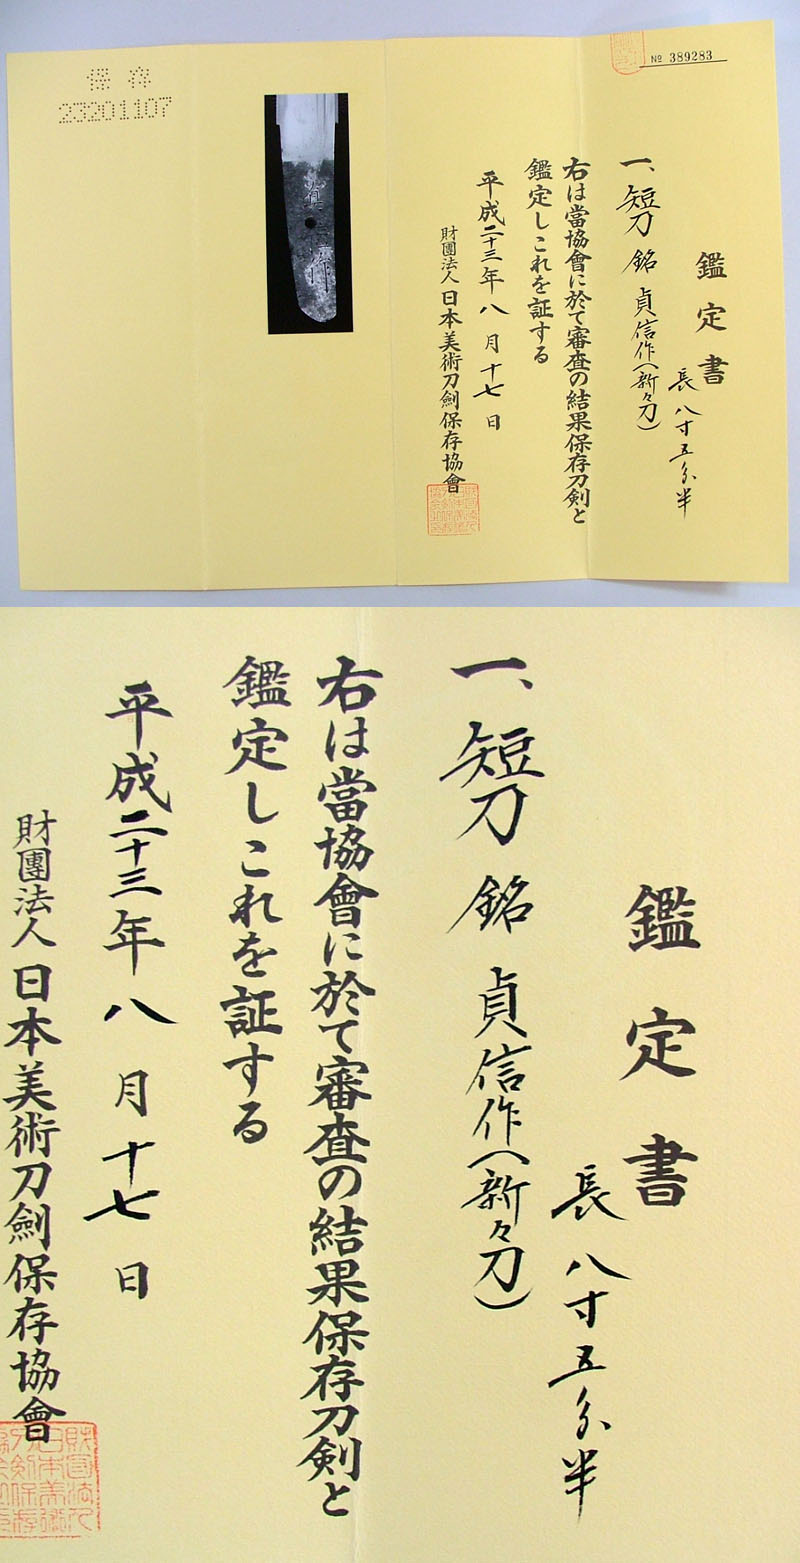 保存
23201107
№ 389283
鑑定書
一、短刀 銘 貞信作(新々刀)
長 八寸五分半
右は當協會に於て審査の結果保存刀剣と
鑑定しこれを証する
平成二十三年 八 月 十七 日
財團法人 日本美術刀劍保存協會
鑑定書
長 八寸五分半
一、短刀 銘 貞信作(新々刀)
右は當協會に於て審査の結果保存刀剣と
鑑定しこれを証する
平成二十三年 八 月 十七 日
財團法人 日本美術刀劍保存協會